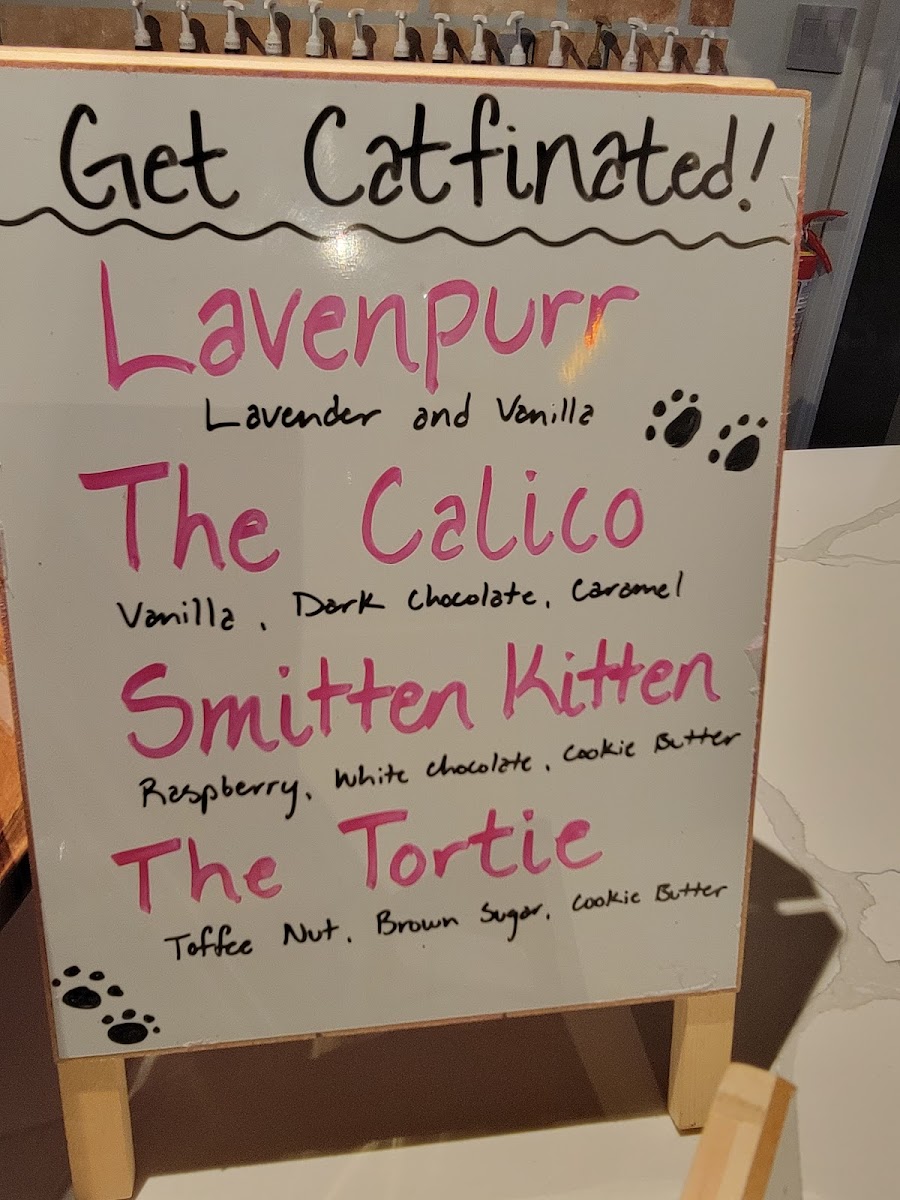 Get Catfinated!
Lavenpurr
Lavender and Vanilla
The Calico
Vanilla, Dark Chocolate, Caramel
Smitten Kitten
Raspberry, White Chocolate, Cookie Butter
The Tortie
Toffee Nut, Brown Sugar, Cookie Butter